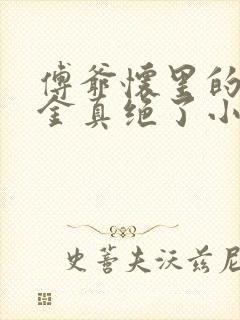 傅爷怀里的
金真绝了小
史蒂夫沃兹尼